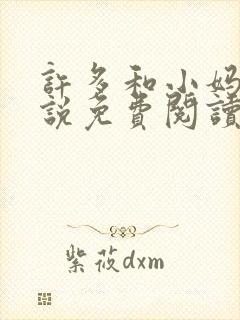 許多和小妈
説免費閱讀
紫莜dxm